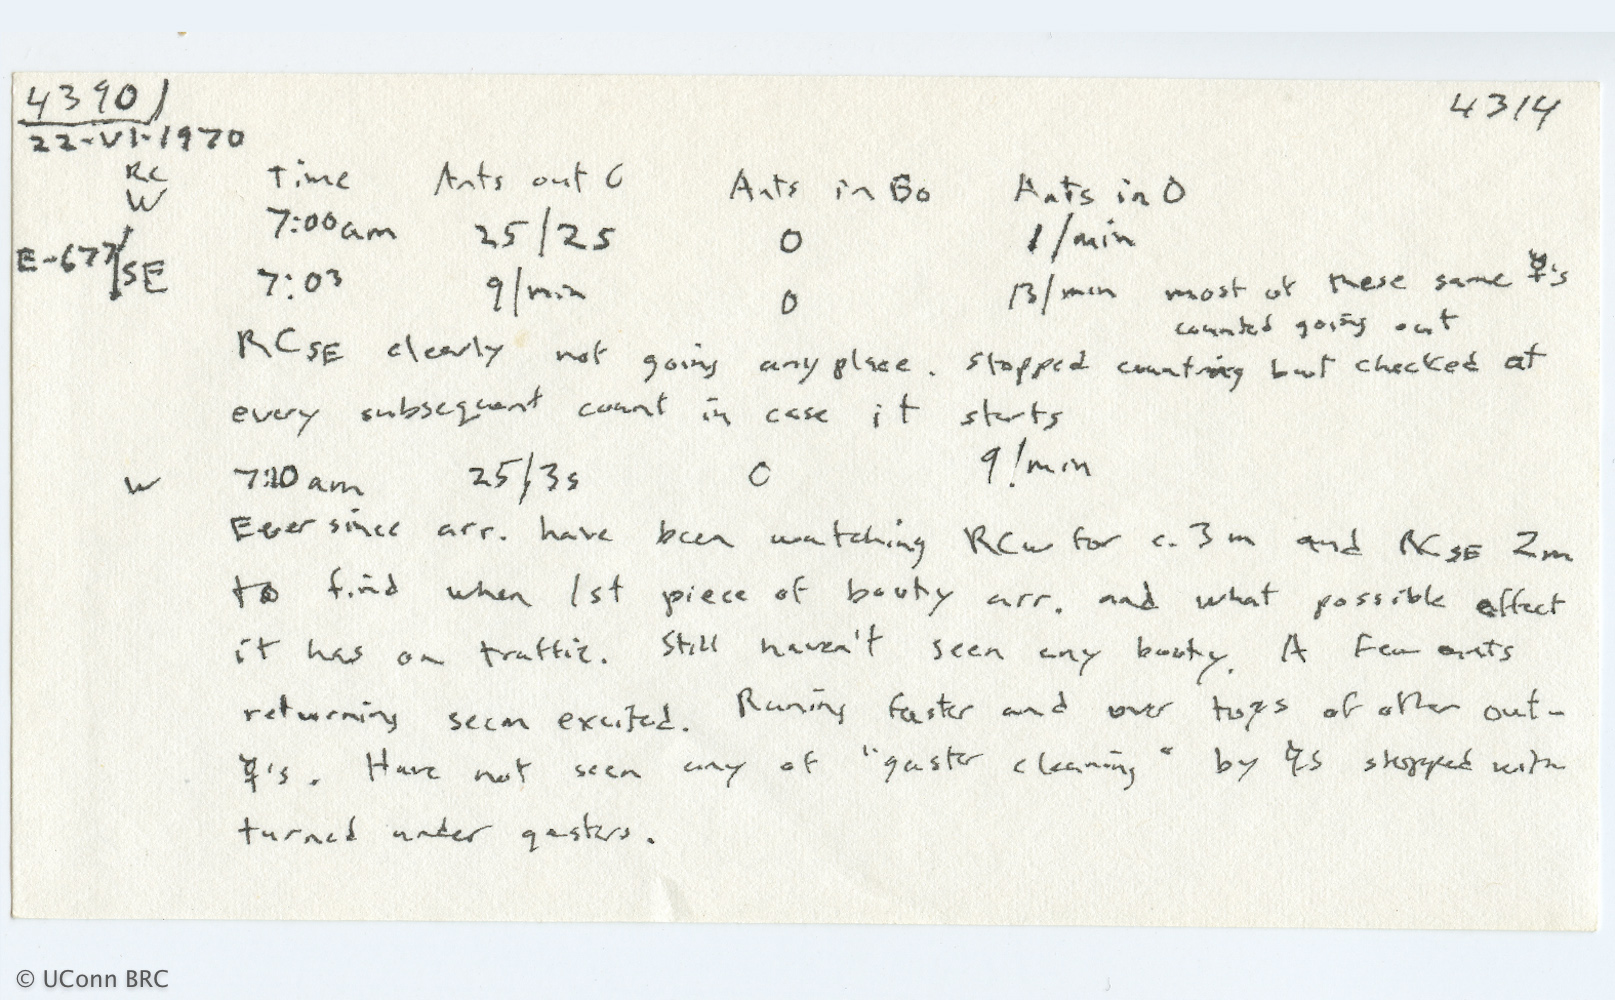 4390 4314
22-VI-1970
RC Time Ants out O Ants in Bo Ants in O
W 7:00am 25/2s 0 1/min
E-677/SE 7:03 9/min 0 13/min most of these same ☿'s
counted going out
RCSE clearly not going anyplace. Stopped counting but checked at
every subsequent count in case it starts
W 7:10am 25/3s 0 9/min
Ever since arr. have been watching RCW for c. 3m and RCSE 2m
to find when 1st piece of booty arr. and what possible effect
it has on traffic. Still haven't seen any booty. A few ants
returning seem excited. Runing faster and over tops of other out-
☿'s. Have not seen any of "gaster cleaning" by ☿s stopped with
turned under gasters.
© UConn BRC